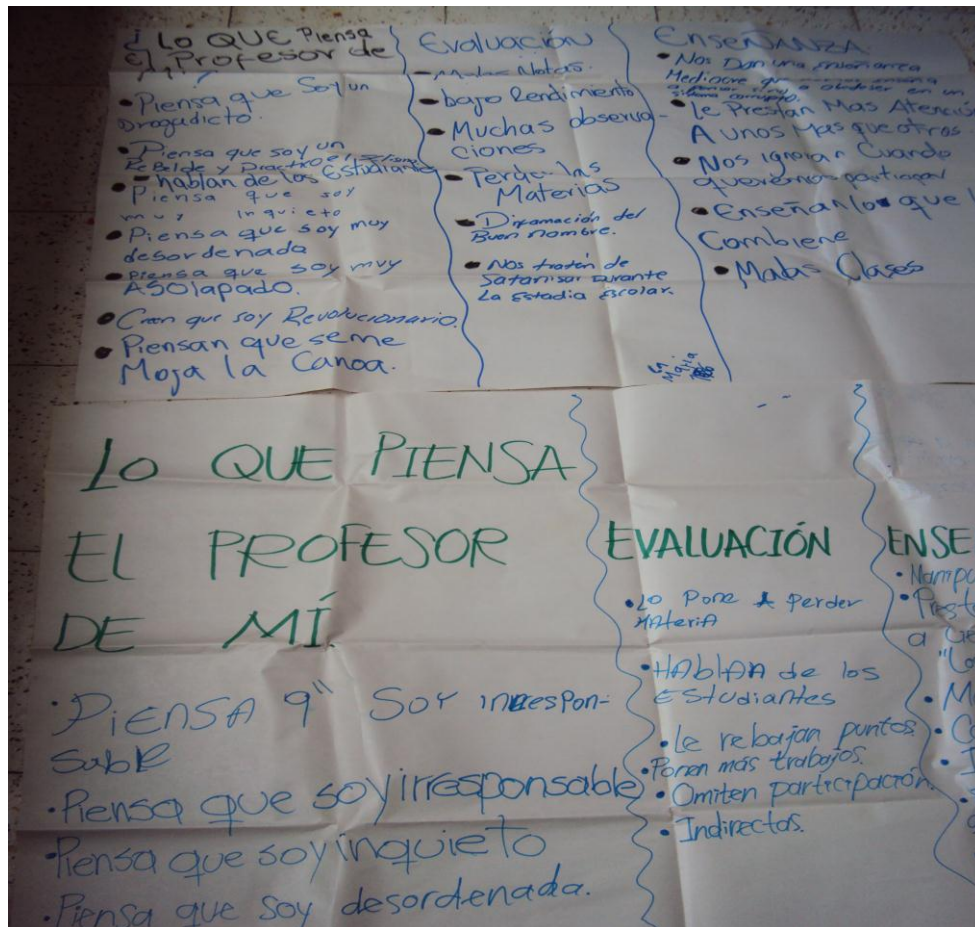 ¿Lo QUE Piensa
El Profesor de
• Piensa que Soy un
Drogadicto.
• Piensa que soy un
Rebelde y
• hablan de los Estudiantes
Piensa que soy
muy inquieto
• Piensa que soy muy
desordenada
• Piensa que soy muy
ASOlapado.
• Creen que soy Revolucionario.
• Piensan que seme
Moja la Canoa.
Evaluación
• Malas Notas.
• bajo Rendimiento
• Muchas observa-
ciones
• Perder las
Materias
• Difamación del
Buen nombre.
• Nos tratan de
Satanisar durante
La Estadia Escolar.
ENSEÑANZA
• Nos Dan una enseñansa
Mediocre que
obedeser en un
sistema corrupto.
• Le Prestan Mas Atenció
A unos Mas que otros
• Nos ignoran Cuando
queremos participar
• Enseñan lo que
Combiene
• Malas Clases
LO QUE PIENSA
EL PROFESOR
DE MÍ.
• PiENSA q" SOY irresPon-
SablE
• Piensa que soy irresponsable
• Piensa que soy inquieto
• Piensa que soy desordenada.
EVALUACIÓN
• LO PonE A PerdEr
MAtEriA
• HAblAn de los
EStudiantes
• Le rebajan puntos
• Ponen más trabajos.
• Omiten participación.
• Indirectas.
ENSE